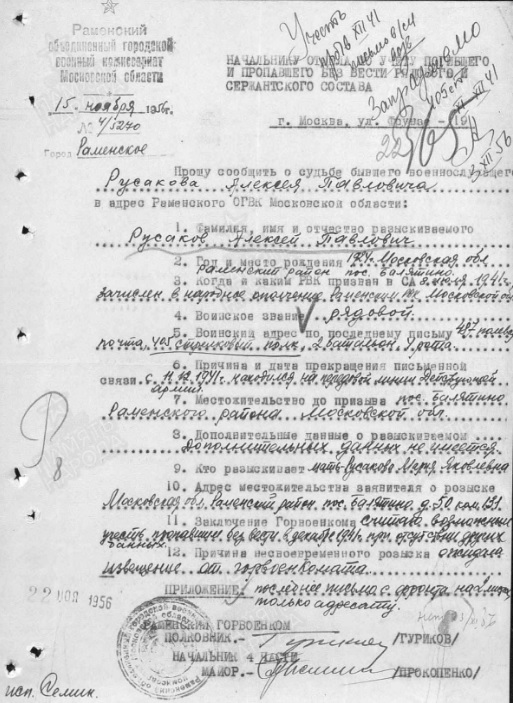 Раменский
объединенный городской
военный комиссариат
Московской области
15. ноября 1956г.
№ 4/5270
Город Раменское
Учесть
НАЧАЛЬНИКУ ОТДЕЛА ПО УЧЕТУ ПОГИБШЕГО
И ПРОПАВШЕГО БЕЗ ВЕСТИ РЯДОВОГО И
СЕРЖАНТСКОГО СОСТАВА
г. Москва, ул. Фрунзе - 19
XII 41
XII 56
Прошу сообщить о судьбе бывшего военнослужащего
Русакова Алексея Павловича
в адрес Раменского ОГВК Московской области:
1. Фамилия, имя и отчество разыскиваемого
Русаков Алексей Павлович
2. Год и место рождения Московская обл
Раменский район пос. Балятино
3. Когда и каким РВК призван в СА 1941г.
зачислен в народное ополчение Раменским Московской
4. Воинское звание рядовой
5. Воинский адрес по последнему письму
почта, стрелковый полк, 2 батальон 1 рота
6. Причина и дата прекращения письменной
связи с 1941г. находился на передовой линии Действующей
армии
7. Местожительство до призыва пос. Балятино
Раменского района Московской обл.
8. Дополнительные данные о разыскиваемом
дополнительных данных не имеется
9. Кто разыскивает мать Русакова Яковлевна
10. Адрес местожительства заявителя о розыске
Московская обл. Раменский район пос. Балятино д.50
11. Заключение Горвоенкома считаю возможным
учесть пропавшим без вести в декабре 1941г. при отсутствии других
данных.
12. Причина несвоевременного розыска ожидала
извещение от горвоенкомата
ПРИЛОЖЕНИЕ: последнее письмо с фронта на
только адресату.
8
22 НОЯ 1956
РАМЕНСКИЙ ГОРВОЕНКОМ
ПОЛКОВНИК.- /ГУРИКОВ/
НАЧАЛЬНИК 4 ЧАСТИ
МАЙОР.- /ПРОКОПЕНКО/
исп. Семин.